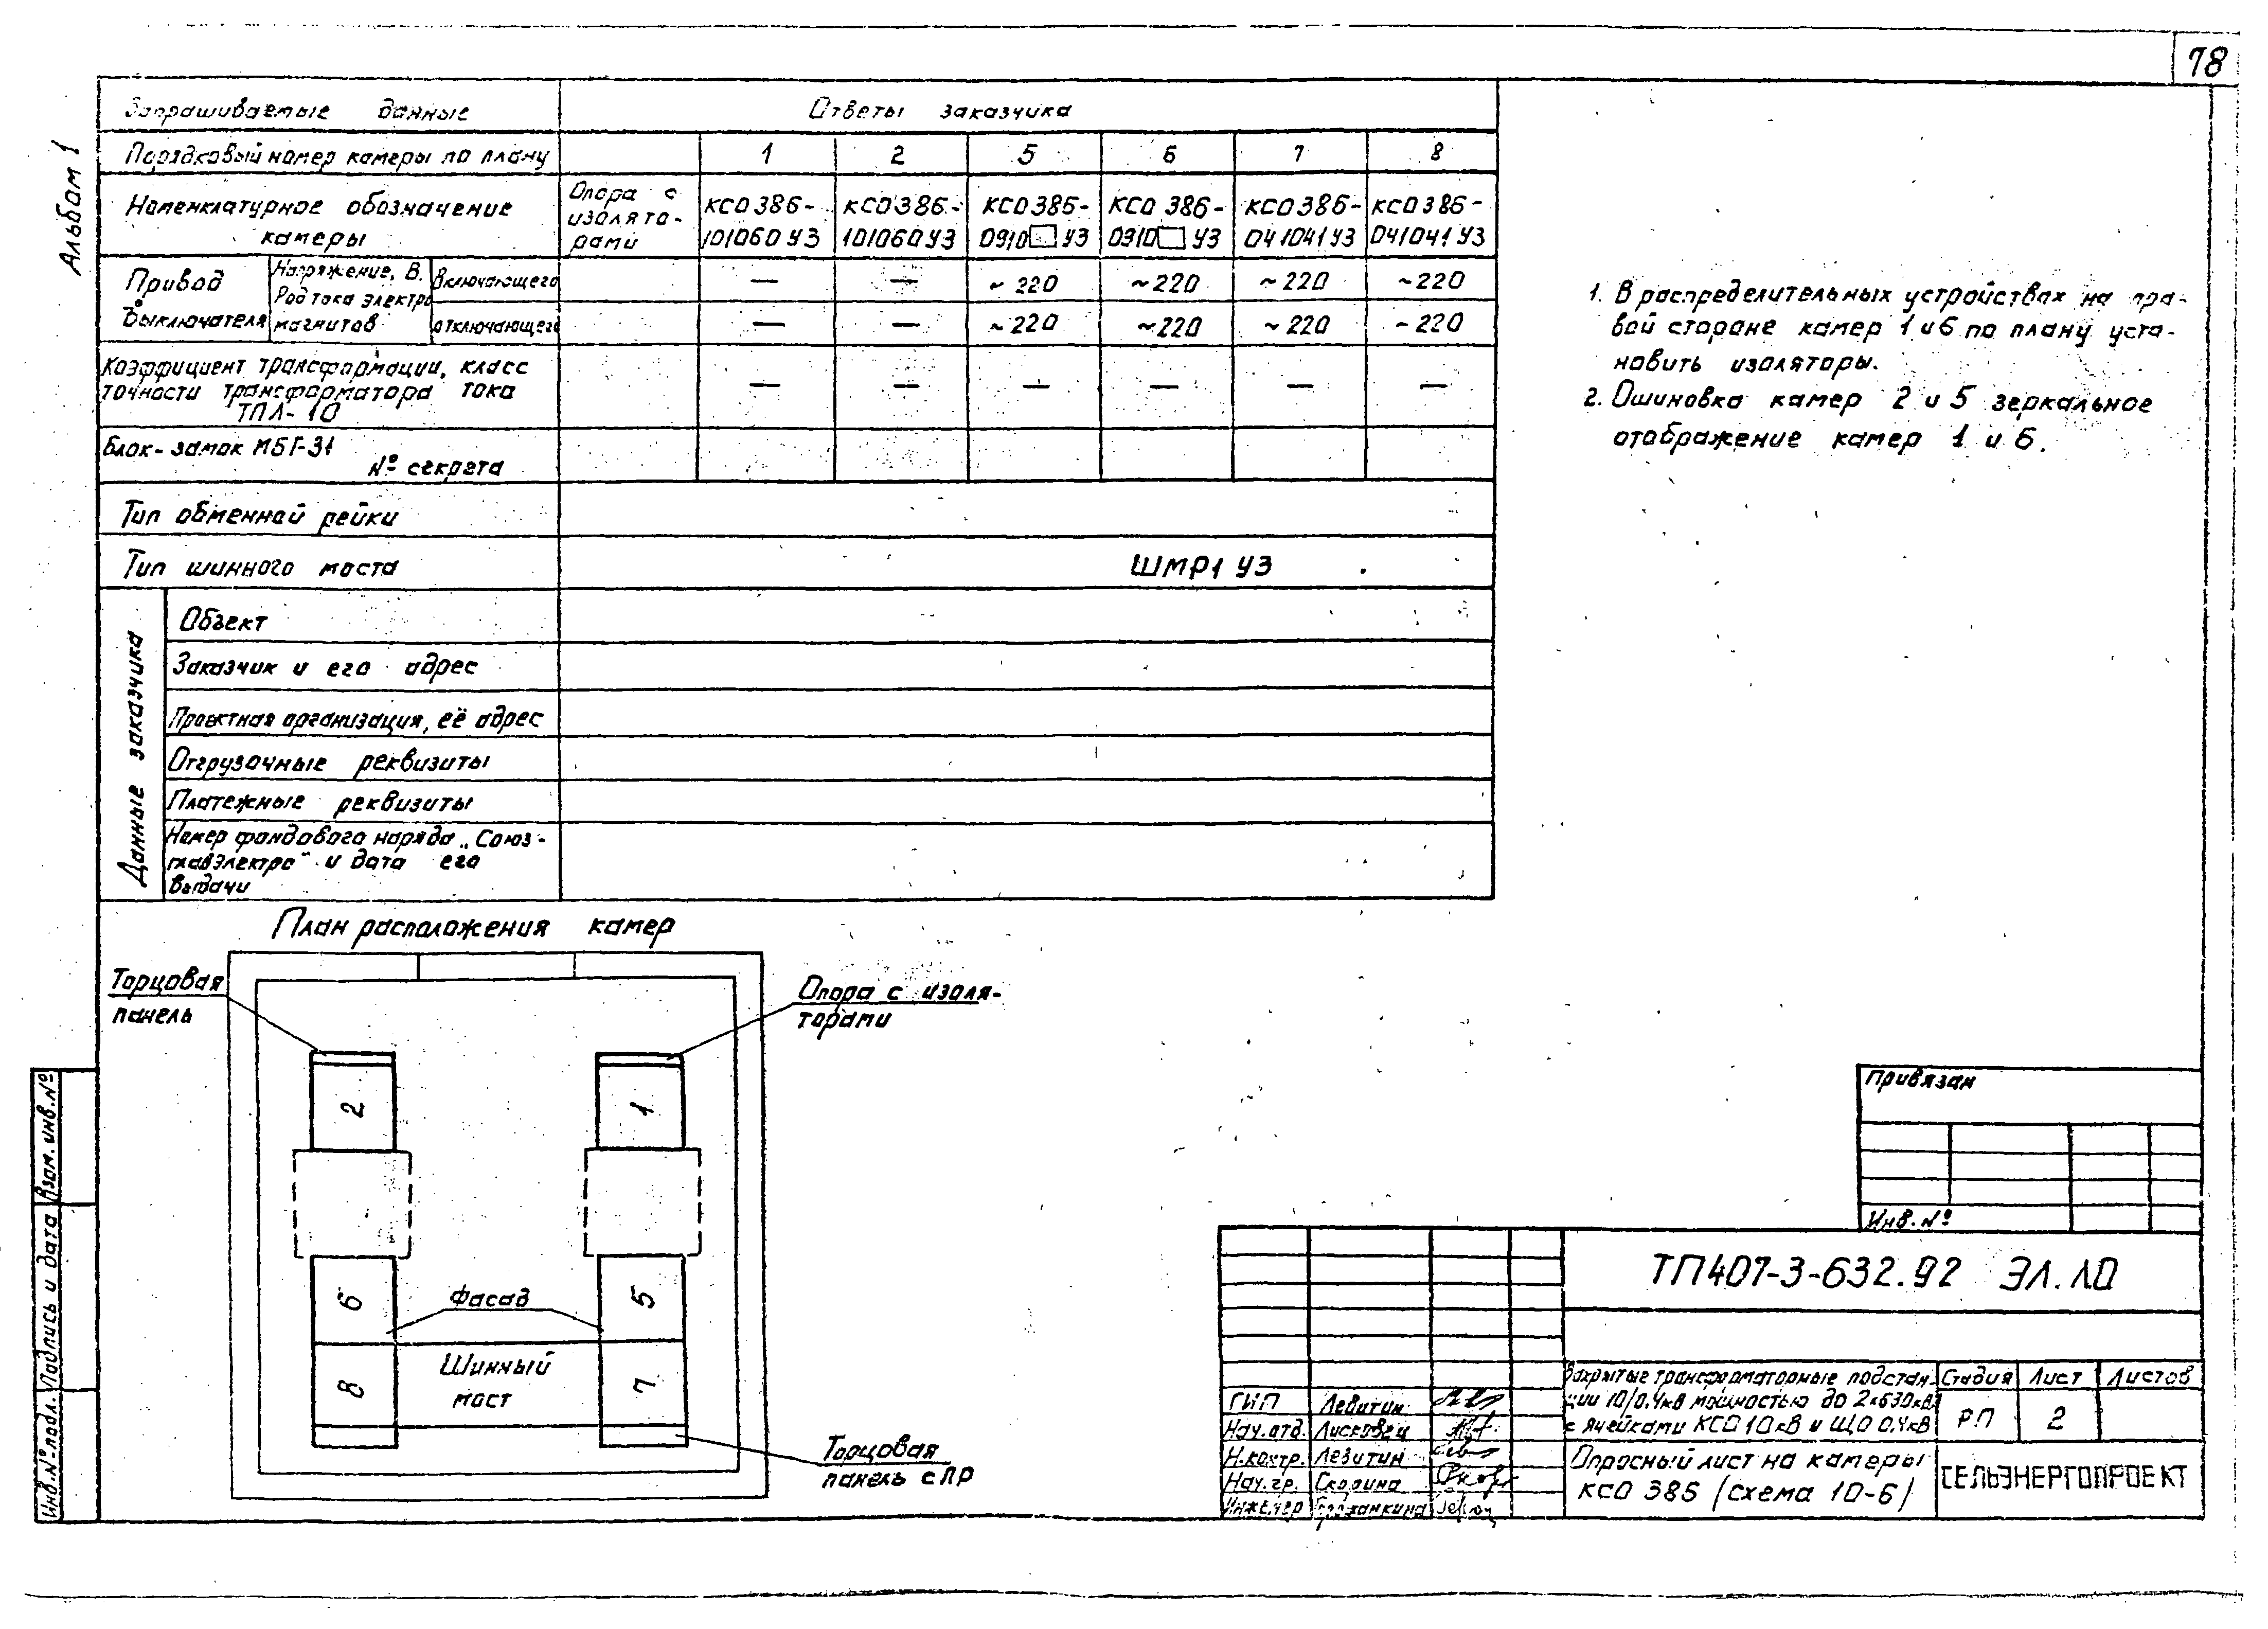 78
Альбом 1
Запрашиваемые данные
Ответы заказчика
Порядковый номер камеры по плану
1 2 5 6 7 8
Номенклатурное обозначение
камеры
Опора с
изолято-
рами
КСО386-
101060У3
КСО386-
101060У3
КСО386-
0910□У3
КСО 386-
0910□У3
КСО386-
041041У3
КСО386-
041041У3
Привод
выключателя
Напряжение, В.
Род тока электро
магнитов
включающего
— — ~220 ~220 ~220 ~220
отключающего
— — ~220 ~220 ~220 ~220
Коэффициент трансформации, класс
точности трансформатора тока
ТПЛ-10
— — — — — —
Блок-замок МБГ-31
№ секрета
Тип обменной рейки
Тип шинного моста
ШМР1 У3
Данные заказчика
Объект
Заказчик и его адрес
Проектная организация, её адрес
Отгрузочные реквизиты
Платежные реквизиты
Номер фондового наряда „Союз-
главэлектро" и дата его
выдачи
1. В распределительных устройствах на пра-
вой стороне камер 1 и 6 по плану уста-
новить изоляторы.
2. Ошиновка камер 2 и 5 зеркальное
отображение камер 1 и 6.
План расположения камер
Торцовая
панель
Опора с изоля-
торами
2
1
6
5
Фасад
8
Шинный
мост
7
Торцовая
панель с ЛР
Привязан
Инв. №
ТП407-3-632.92 ЭЛ.ЛО
Закрытые трансформаторные подстан-
ции 10/0,4кв мощностью до 2х630кВА
с ячейками КСО 10кВ и ЩО 0,4кВ
Стадия Лист Листов
РП 2
Опросный лист на камеры
КСО 386 (схема 10-6)
СЕЛЬЭНЕРГОПРОЕКТ
ГИП Левитин
Нач.отд. Лисковец
Н.контр. Левитин
Нач.гр. Скорина
Инженер
Взам. инв. №
Подпись и дата
Инв.№ подл.